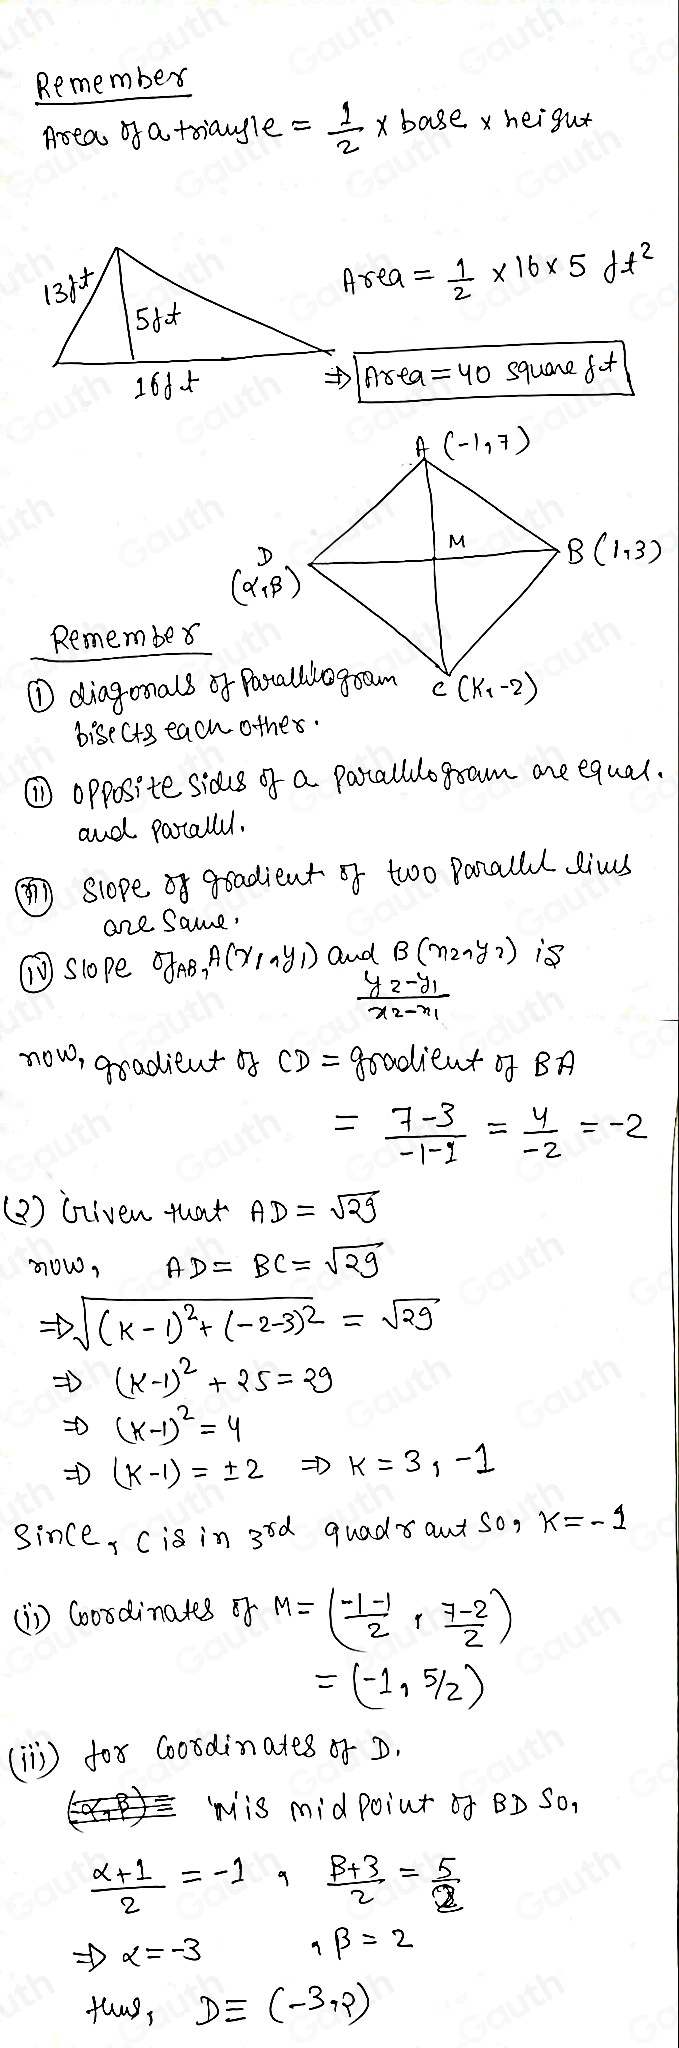 Remember
Area of a triangle = 1/2 × base × height
13ft
5ft
16ft
Area = 1/2 × 16 × 5 ft²
⇒ Area = 40 square ft
A (-1, 7)
M
B (1, 3)
D
(α, β)
C (K, -2)
Remember
(i) diagonals of Parallelogram
bisects each other.
(ii) opposite sides of a parallelogram are equal.
and parallel.
(iii) Slope of gradient of two parallel lines
are same.
(iv) Slope of AB, A(x1, y1) and B(x2, y2) is
y2-y1/x2-x1
now, gradient of CD = gradient of BA
= 7-3/-1-1 = 4/-2 = -2
(2) Given that AD = √29
now, AD = BC = √29
⇒ √(K-1)²+(-2-3)² = √29
⇒ (K-1)² + 25 = 29
⇒ (K-1)² = 4
⇒ (K-1) = ±2 ⇒ K = 3, -1
Since, C is in 3rd quadrant so, K = -1
(ii) Coordinates of M = (-1-1/2, 7-2/2)
= (-1, 5/2)
(iii) for Coordinates of D.
M is midpoint of BD So,
α+1/2 = -1, β+3/2 = 5/2
⇒ α = -3, β = 2
thus, D ≡ (-3, 2)